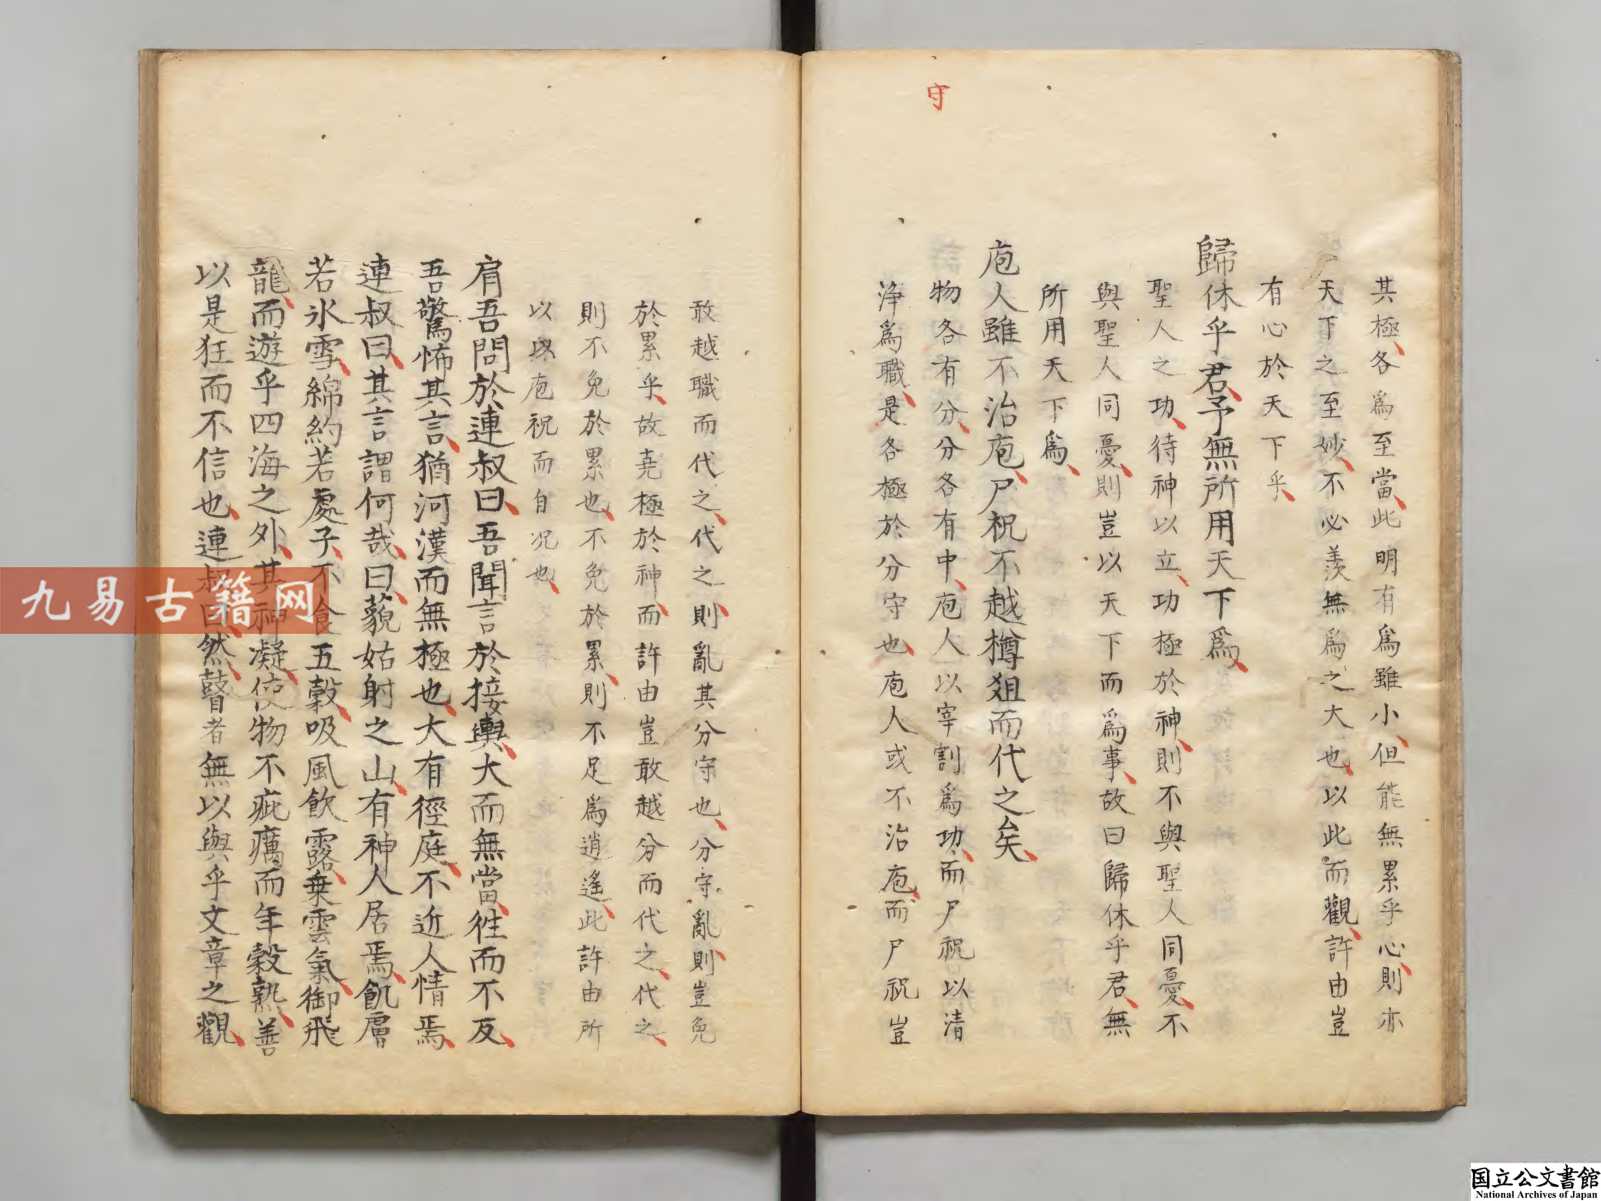 守
其極各爲至當此明有爲雖小但能無累乎心則亦
天下之至妙不必羡無爲之大也以此而觀許由豈
有心於天下乎
歸休乎君予無所用天下爲
聖人之功待神以立功極於神則不與聖人同憂不
與聖人同憂則豈以天下而爲事故曰歸休乎君無
所用天下爲
庖人雖不治庖尸祝不越樽俎而代之矣
物各有分分各有中庖人以宰割爲功而尸祝以清
淨爲職是各極於分守也庖人或不治庖而尸祝豈
敢越職而代之代之則亂其分守也分守亂則豈免
於累乎故堯極於神而許由豈敢越分而代之代之
則不免於累也不免於累則不足爲逍遙此許由所
以庖祝而自况也
肩吾問於連叔曰吾聞言於接輿大而無當徃而不反
吾驚怖其言猶河漢而無極也大有徑庭不近人情焉
連叔曰其言謂何哉曰藐姑射之山有神人居焉飢膚
若氷雪綿約若處子不食五穀吸風飲露乗雲氣御飛
龍而遊乎四海之外其神凝使物不疵癘而年穀熟善
以是狂而不信也連叔曰然瞽者無以與乎文章之觀
九易古籍网
国立公文書館
National Archives of Japan